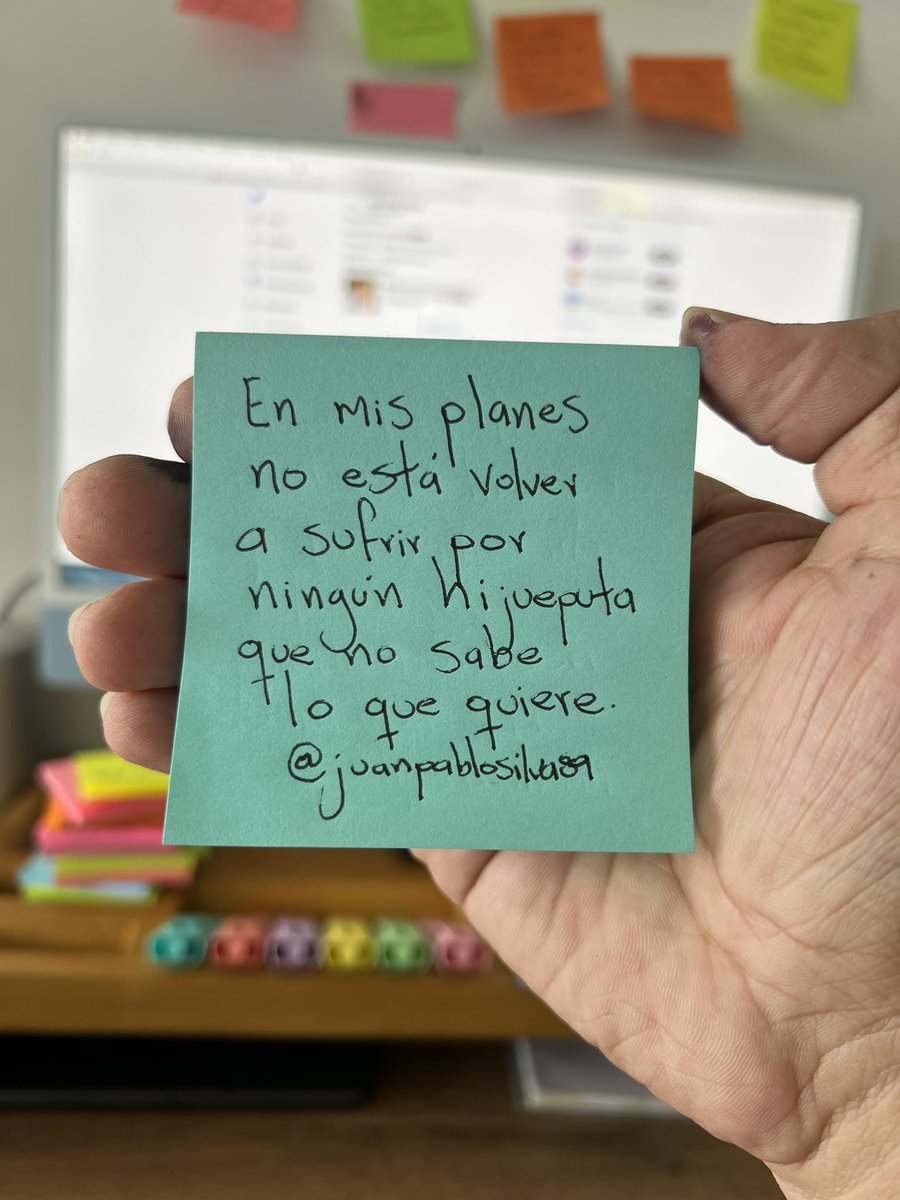 En mis planes
no está volver
a sufrir por
ningún hijueputa
que no sabe
lo que quiere.
@juanpablosilva89